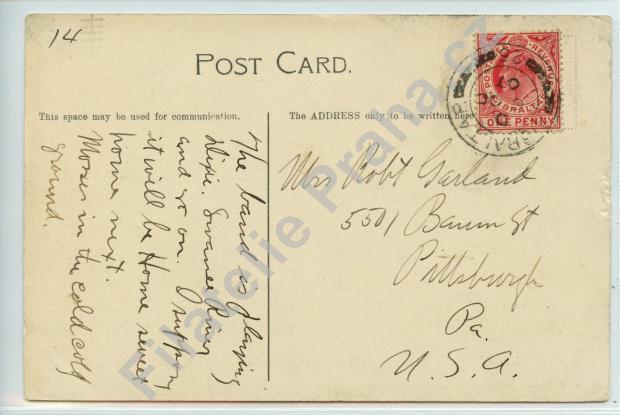 14
POST CARD.
This space may be used for communication.
The ADDRESS only to be written here
The band is playing
Dixie. Swanee River
and so on. I suppose
it will be Home sweet
home next.
Moses in the cold cold
ground.
Mrs Robt Garland
5501 Baum St
Pittsburgh
Pa.
U.S.A.
POSTAGE REVENUE
GIBRALTAR
ONE PENNY
GIBRALTAR
Filatelie Praha.cz